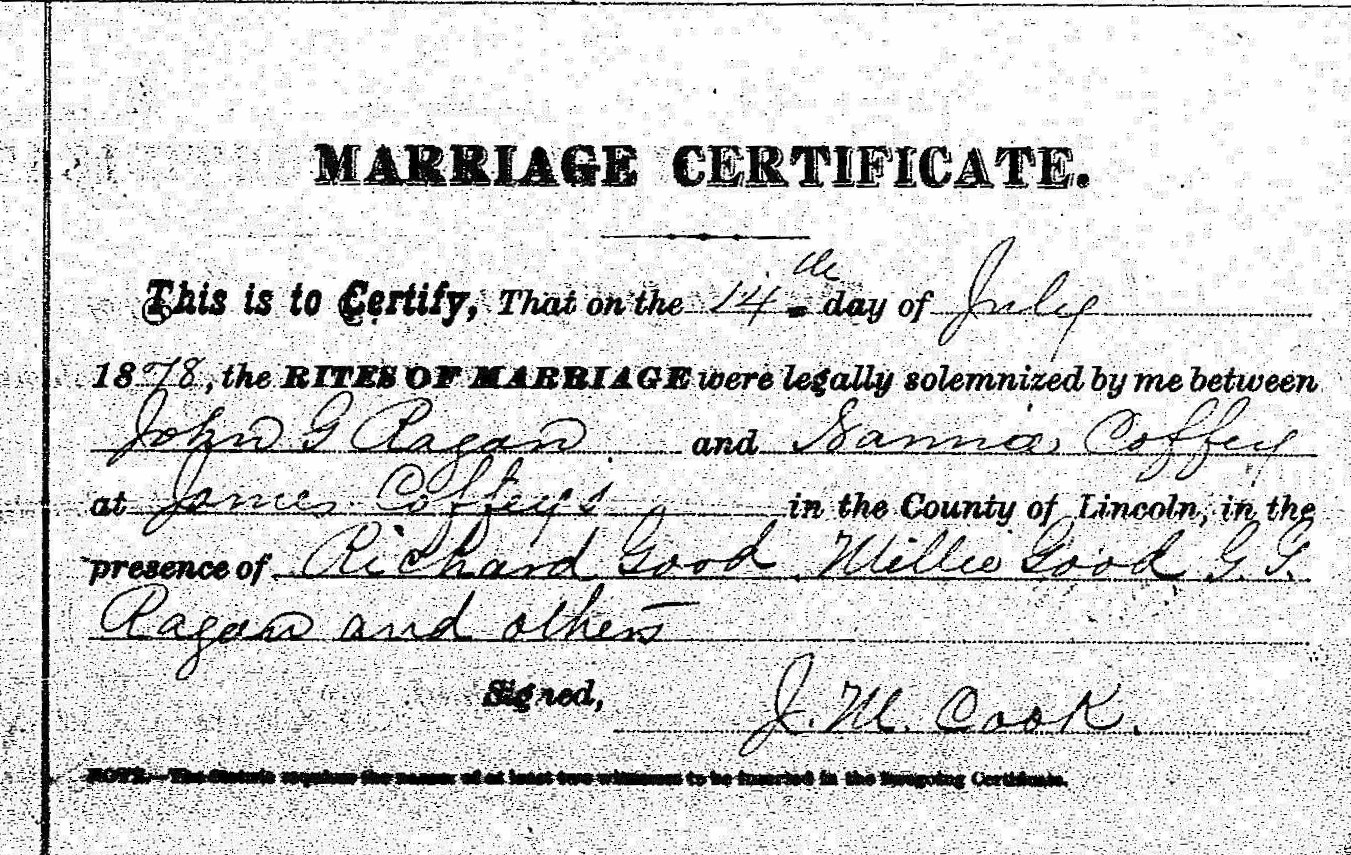 MARRIAGE CERTIFICATE.
This is to Certify, That on the 14th day of July
1878, the RITES OF MARRIAGE were legally solemnized by me between
John G Ragan and Nannie Coffey
at James Coffey's in the County of Lincoln, in the
presence of Richard Good, Millie Good G.
Ragan and others
Signed, J. M. Cook.
NOTE.—The Statute requires the names of at least two witnesses to be inserted in the foregoing Certificate.